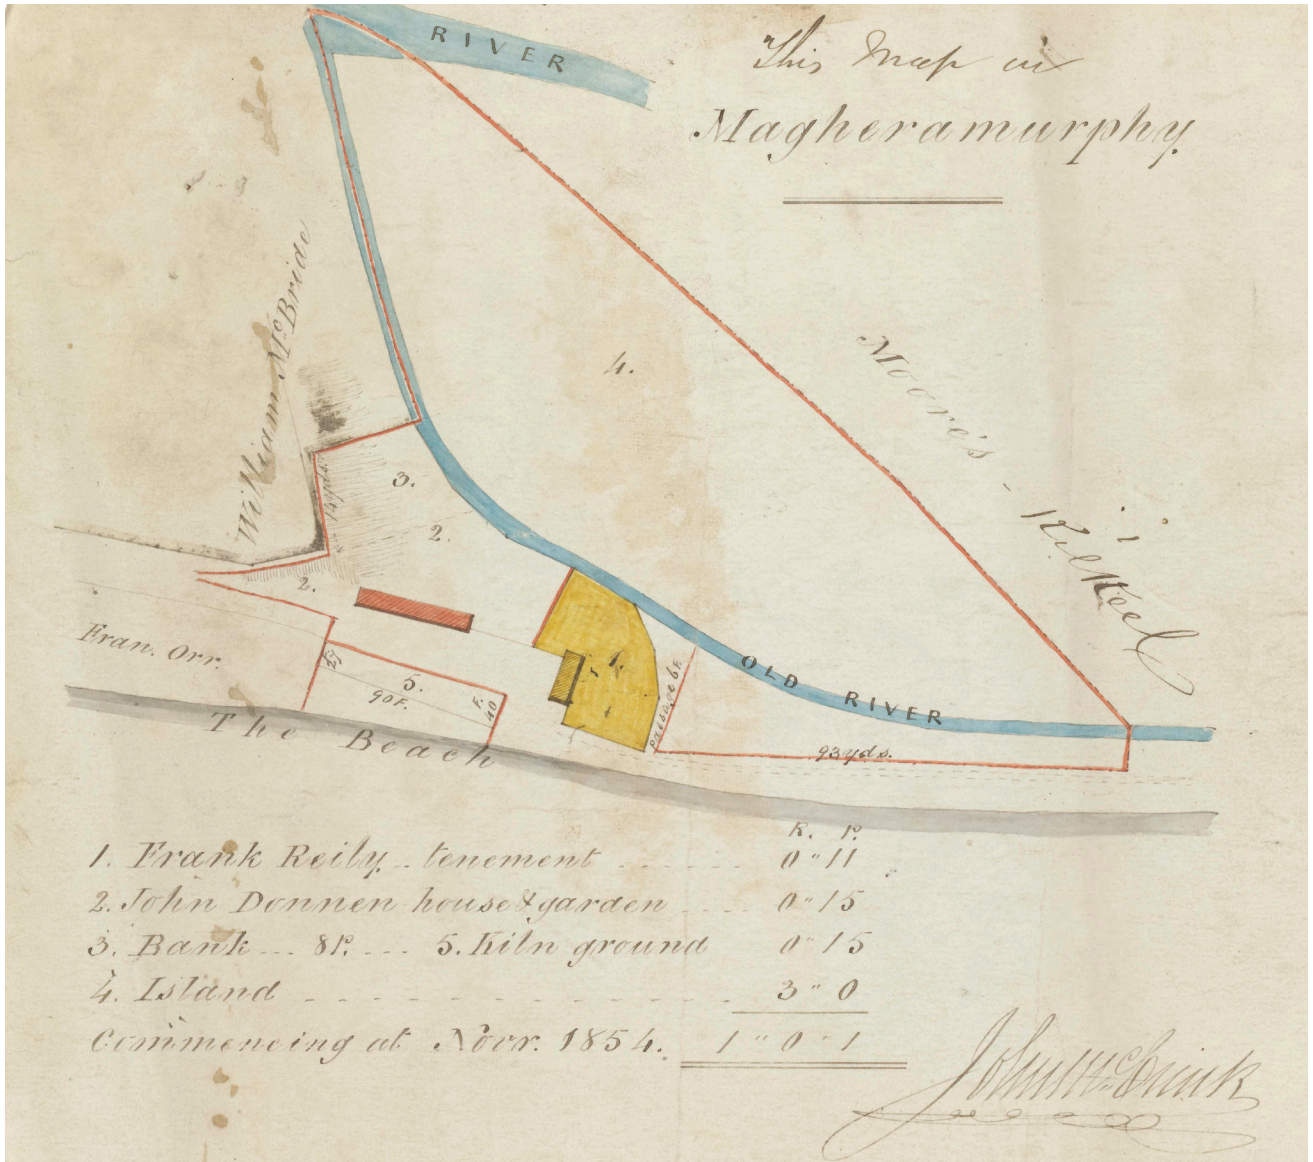 RIVER
This Map in
Magheramurphy.
William McBride
4.
Moore's - Kilkeel
3.
2.
2.
1.
Fran. Orr.
5.
90 F.
F. 40
Passage 6 F.
OLD RIVER
93 yds.
The Beach
R. P.
1. Frank Reily tenement 0 " 11
2. John Donnen house & garden 0 " 15
3. Bank 8P. 5. Kiln ground 0 " 15
4. Island 3 " 0
Commencing at Novr. 1854. 1 " 0 " 1
John